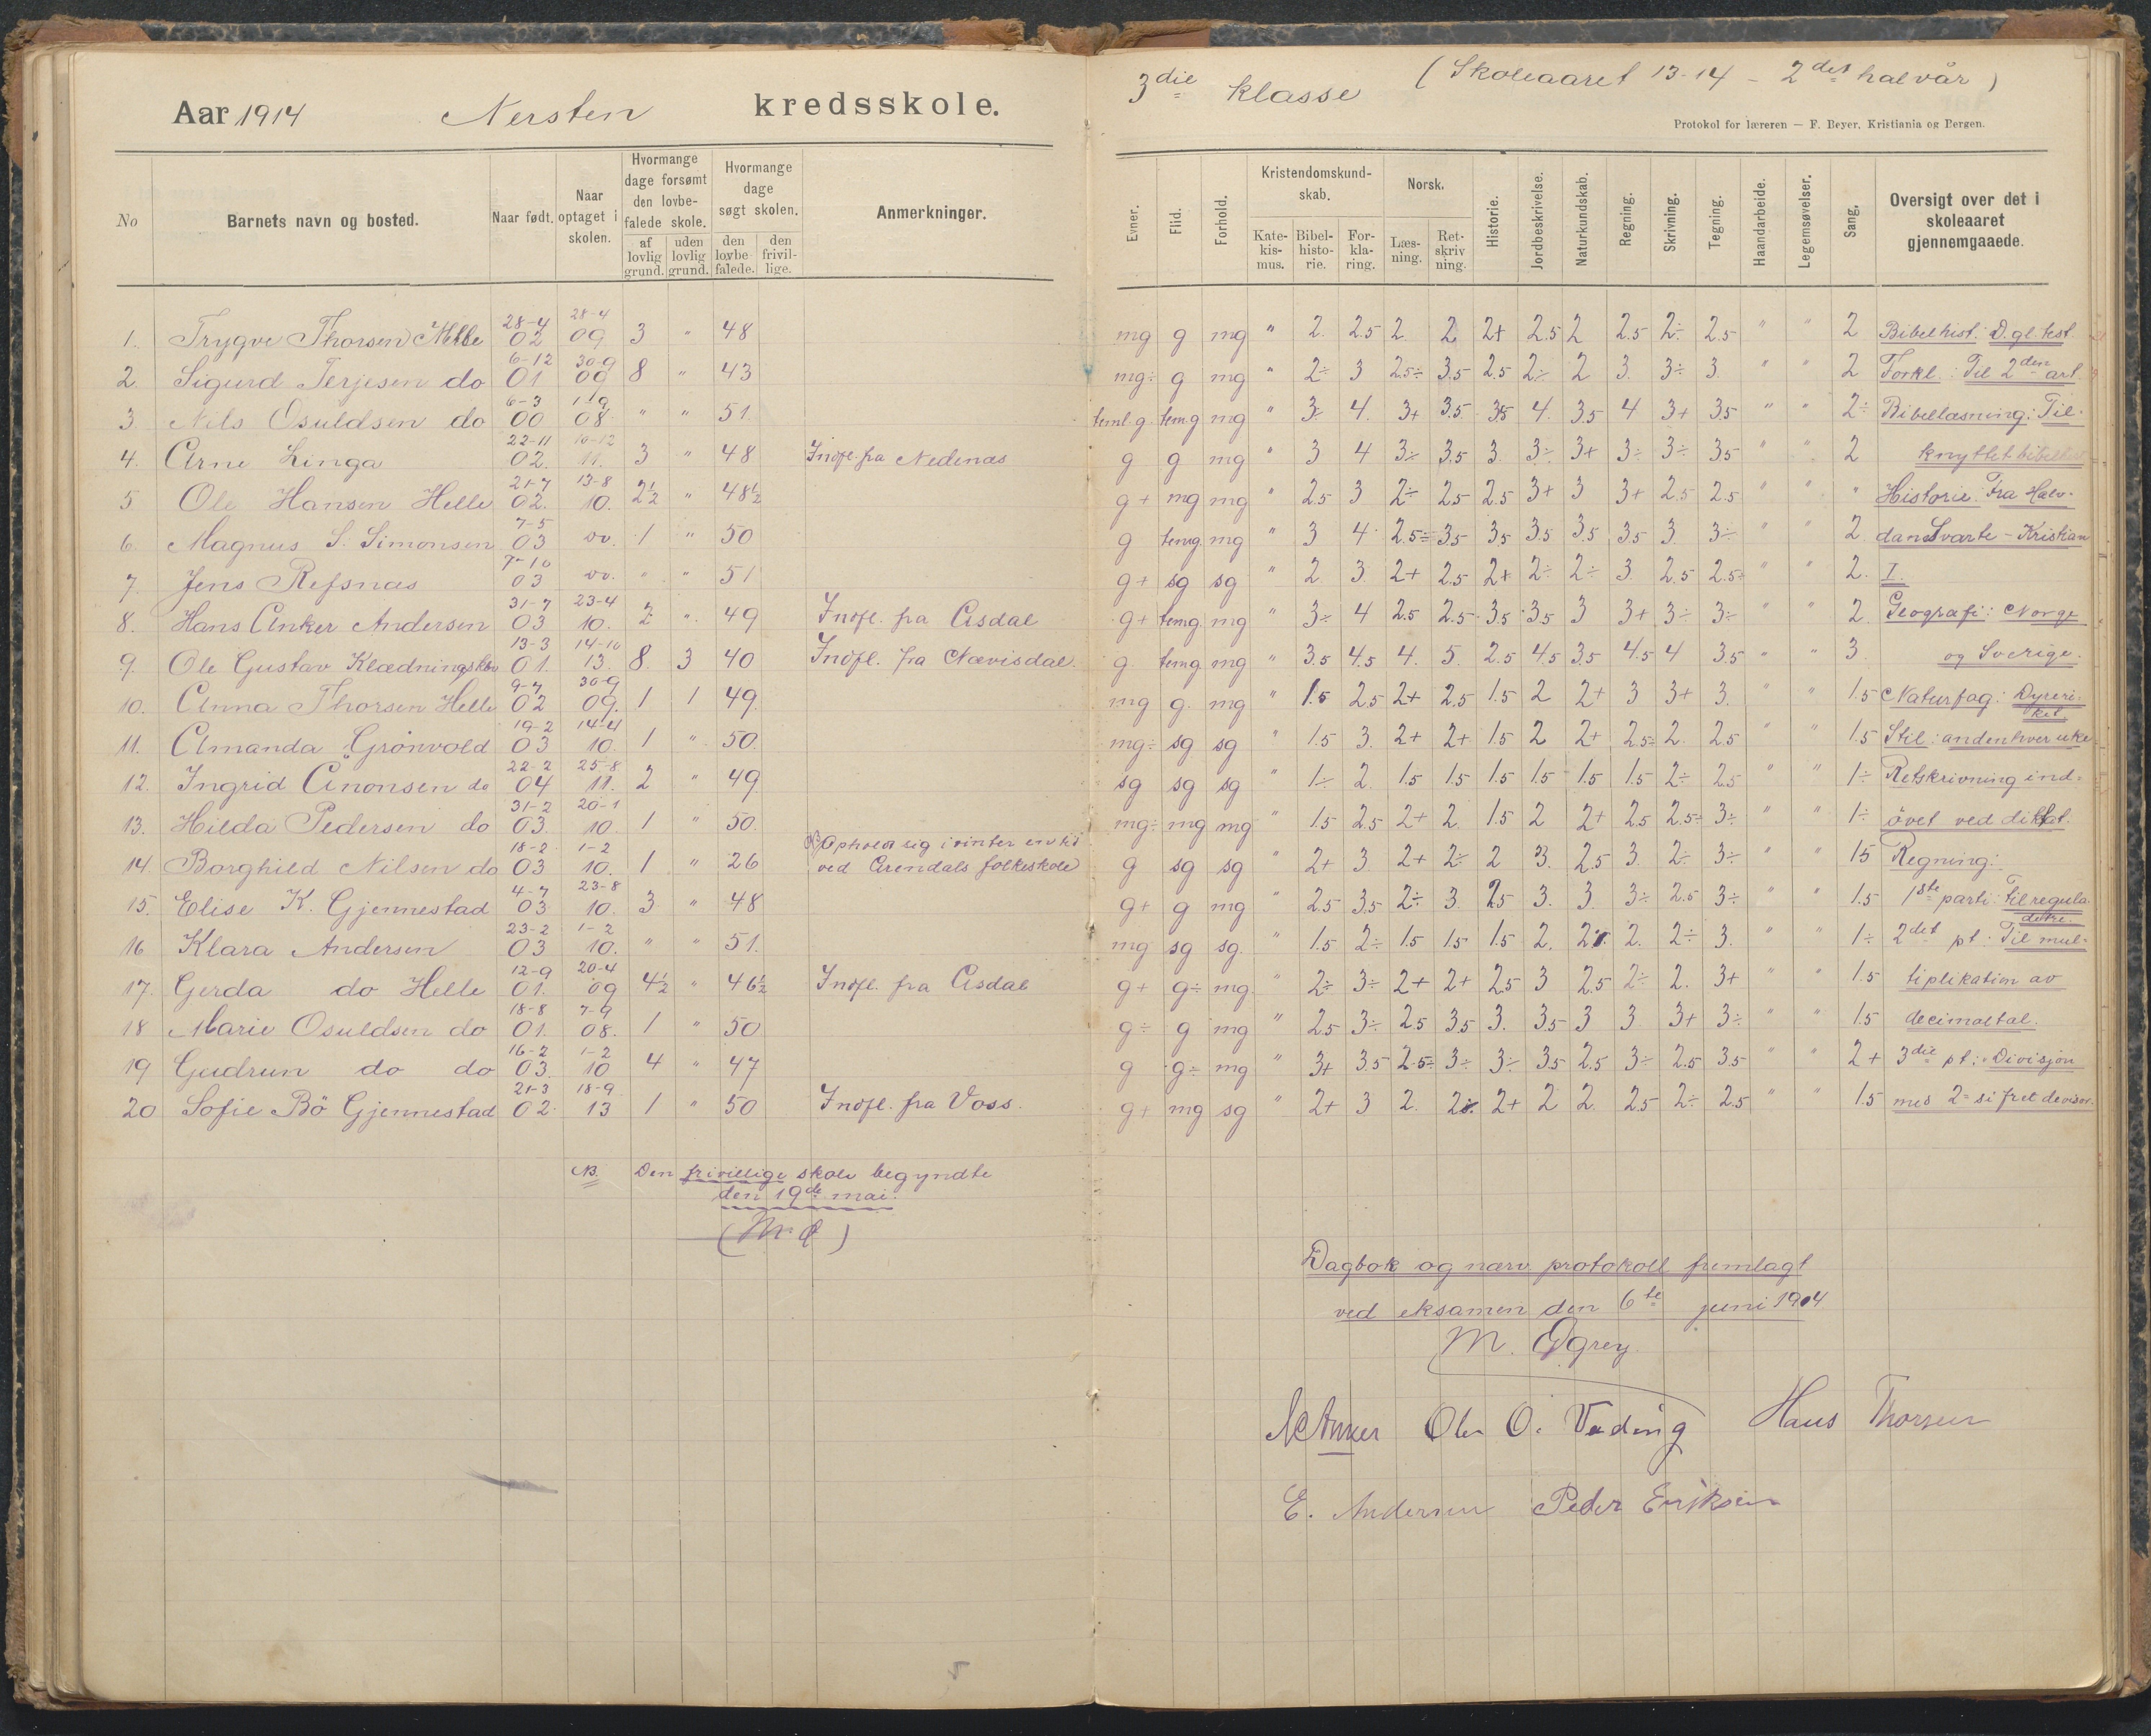 Aar 1914 Nersten kredsskole.
No Barnets navn og bosted. Naar født. Naar optaget i skolen. Hvormange dage forsømt den lovbefalede skole. af lovlig grund. uden lovlig grund. Hvormange dage søgt skolen. den lovbefalede. den frivillige. Anmerkninger.
1. Trygve Thorsen Helle 28-4 02 28-4 09 3 " 48
2. Sigurd Terjesen do 6-12 01 30-9 09 8 " 43
3. Nils Osuldsen do 6-3 00 1-9 08 " " 51
4. Arne Linga 22-11 02. 10-12 11. 3 " 48 Indfl. fra Nedenæs
5. Ole Hansen Helle 21-7 02. 13-8 10. 2½ " 48½
6. Magnus S. Simonsen 7-5 03 do. 1 " 50
7. Jens Refsnæs 7-10 03 do. " " 51
8. Hans Anker Andersen 31-7 03 23-4 10. 2 " 49 Indfl. fra Asdal
9. Ole Gustav 13-3 01. 14-10 13. 8. 3 40 Indfl. fra Nævisdal.
10. Anna Thorsen Helle 9-7 02 30-9 09. 1 1 49
11. Amanda Grönvold 19-2 03 14-4 10. 1 " 50.
12. Ingrid Anonsen do 22-2 04 25-8 11. 2 " 49
13. Hilda Pedersen do 31-2 03. 20-1 10. 1 " 50.
14. Borghild Nilsen do 18-2 03 1-2 10. 1 " 26 NB Opholdt sig i vinter en tid ved Arendals folkeskole
15. Elise K. Gjennestad 4-7 03 23-8 10. 3 " 48
16 Klara Andersen 23-2 03 1-2 10. " " 51.
17. Gerda do Helle 12-9 01. 20-4 09 4½ " 46½ Indfl. fra Asdal
18 Marie Osuldsen do 18-8 01. 7-9 08. 1 " 50
19 Gudrun do do 16-2 03. 1-2 10 4 " 47
20 Sofie Bö Gjennestad 21-3 02. 18-9 13 1 " 50 Indfl. fra Voss.
NB. Den frivillige skole begyndte
den 19de mai.
3die klasse (Skoleaaret 13-14 - 2det halvår)
Protokol for læreren — F. Beyer, Kristiania og Bergen.
Evner. Flid. Forhold. Kristendomskundskab. Katekismus. Bibelhistorie. Forklaring. Norsk. Læsning. Retskrivning. Historie. Jordbeskrivelse. Naturkundskab. Regning. Skrivning. Tegning. Haandarbeide. Legemsøvelser. Sang. Oversigt over det i skoleaaret gjennemgaaede.
mg g mg " 2. 2.5 2. 2 2+ 2.5 2 2.5 2÷ 2.5 " " 2 Bibelhist: D. gl. test.
mg÷ g mg " 2÷ 3 2.5÷ 3.5 2.5 2÷ 2 3. 3÷ 3. " " 2 Forkl.: Til 2den art.
teml.g. temg mg " 3÷ 4. 3+ 3.5 3.5 4. 3.5 4 3+ 3.5 " " 2÷ Bibellæsning: Til
g g mg " 3 4 3÷ 3.5 3. 3÷ 3+ 3÷ 3÷ 3.5 " " 2 knyttet
g+ mg mg " 2.5 3 2÷ 2.5 2.5 3+ 3 3+ 2.5 2.5 " " " Historie: Fra Halv-
g temg mg " 3 4 2.5÷ 3.5 3.5 3.5 3.5 3.5 3. 3÷ " " 2 dan Svarte - Kristian
g+ sg sg " 2. 3. 2+ 2.5 2+ 2÷ 2÷ 3. 2.5 2.5÷ " " 2. I.
g+ temg mg " 3÷ 4 2.5 2.5 3.5 3.5 3 3+ 3÷ 3÷ " " 2 Geografi: Norge
g. temg mg " 3.5 4.5 4. 5. 2.5 4.5 3.5 4.5 4 3.5 " " 3 og Sverige.
mg g. mg " 1.5 2.5 2+ 2.5 1.5 2 2+ 3 3+ 3. " " 1.5 Naturfag: Dyreri-
ket
mg÷ sg sg " 1.5 3. 2+ 2+ 1.5 2 2+ 2.5÷ 2. 2.5 " " 1.5 Stil: andenhver uke
sg sg sg " 1÷ 2. 1.5 1.5 1.5 1.5 1.5 1.5 2÷ 2.5 " " 1÷ Retskrivning ind-
mg÷ mg mg " 1.5 2.5 2+ 2 1.5 2 2+ 2.5 2.5÷ 3÷ " " 1÷ övet ved diktat.
g sg sg " 2+ 3 2+ 2÷ 2 3. 2.5 3. 2÷ 3÷ " " 1.5 Regning:
g+ g mg " 2.5 3.5 2÷ 3. 2.5 3. 3. 3÷ 2.5 3÷ " " 1.5 1ste parti: Til regula
detri.
mg sg sg. " 1.5 2÷ 1.5 1.5 1.5 2. 2 2. 2÷ 3. " " 1÷ 2det pt: Til mul-
g+ g÷ mg. " 2÷ 3÷ 2+ 2+ 2.5 3 2.5 2÷ 2. 3+ " " 1.5 tiplikation av
g÷ g mg " 2.5 3÷ 2.5 3.5 3. 3.5 3 3 3+ 3÷ " " 1.5 decimaltal.
g g÷ mg " 3+ 3.5 2.5÷ 3÷ 3÷ 3.5 2.5 3÷ 2.5 3.5 " " 2+ 3die pt: Divisjon
g+ mg sg " 2+ 3 2. 2÷ 2+ 2 2. 2.5 2÷ 2.5 " " 1.5 med 2-sifret devisor.
Dagbok og nærv. protokoll fremlagt
ved eksamen den 6te juni 1914
M.
Ole O. Vading Hans Thorsen
E. Andersen Peder Eriksen